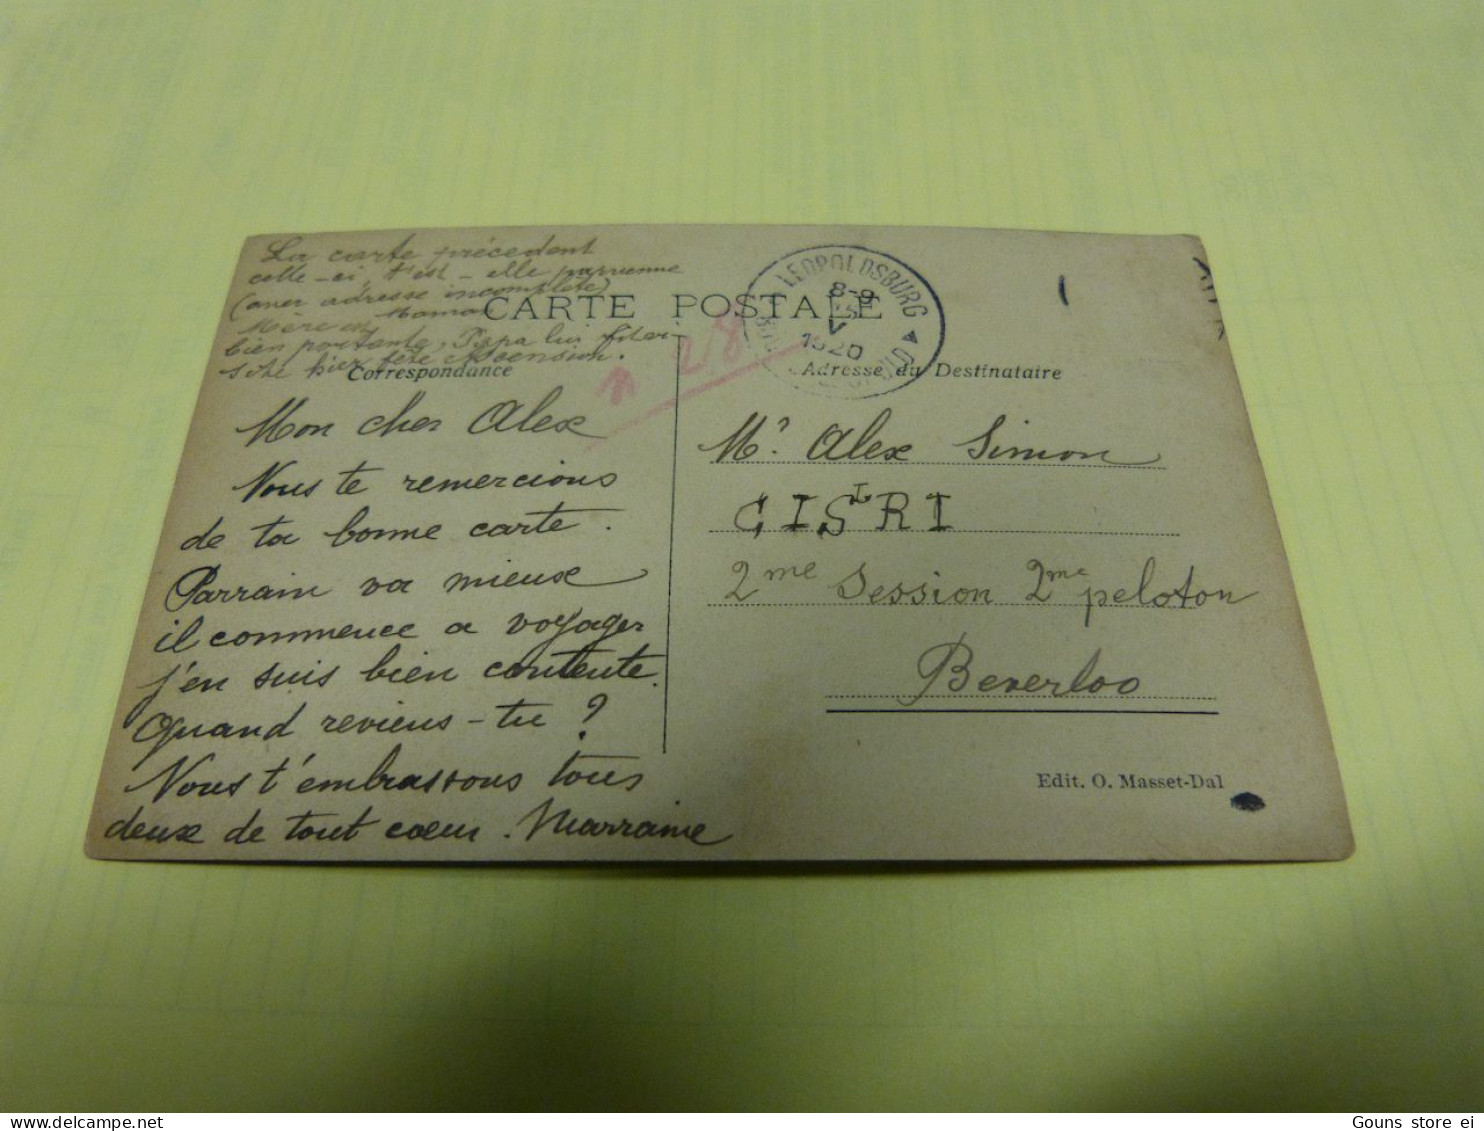 La carte précedent
celle-ci, t'est-elle parvenue
(avec adresse incomplete)
Maman
Mère est
bien portante, Papa lui
hier fête Ascension.
CARTE POSTALE
LEOPOLDSBURG
8-9
V
1920
28
Correspondance
Adresse du Destinataire
Mon cher Alex
Nous te remercions
de ta bonne carte.
Parrain va mieux
il commence a voyager
j'en suis bien contente.
Quand reviens-tu ?
Nous t'embrassons tous
deux de tout coeur. Marraine
Mr. Alex Simon
CISLRI
2me Session 2me peloton
Beverloo
Edit. O. Masset-Dal
Gouns store ei